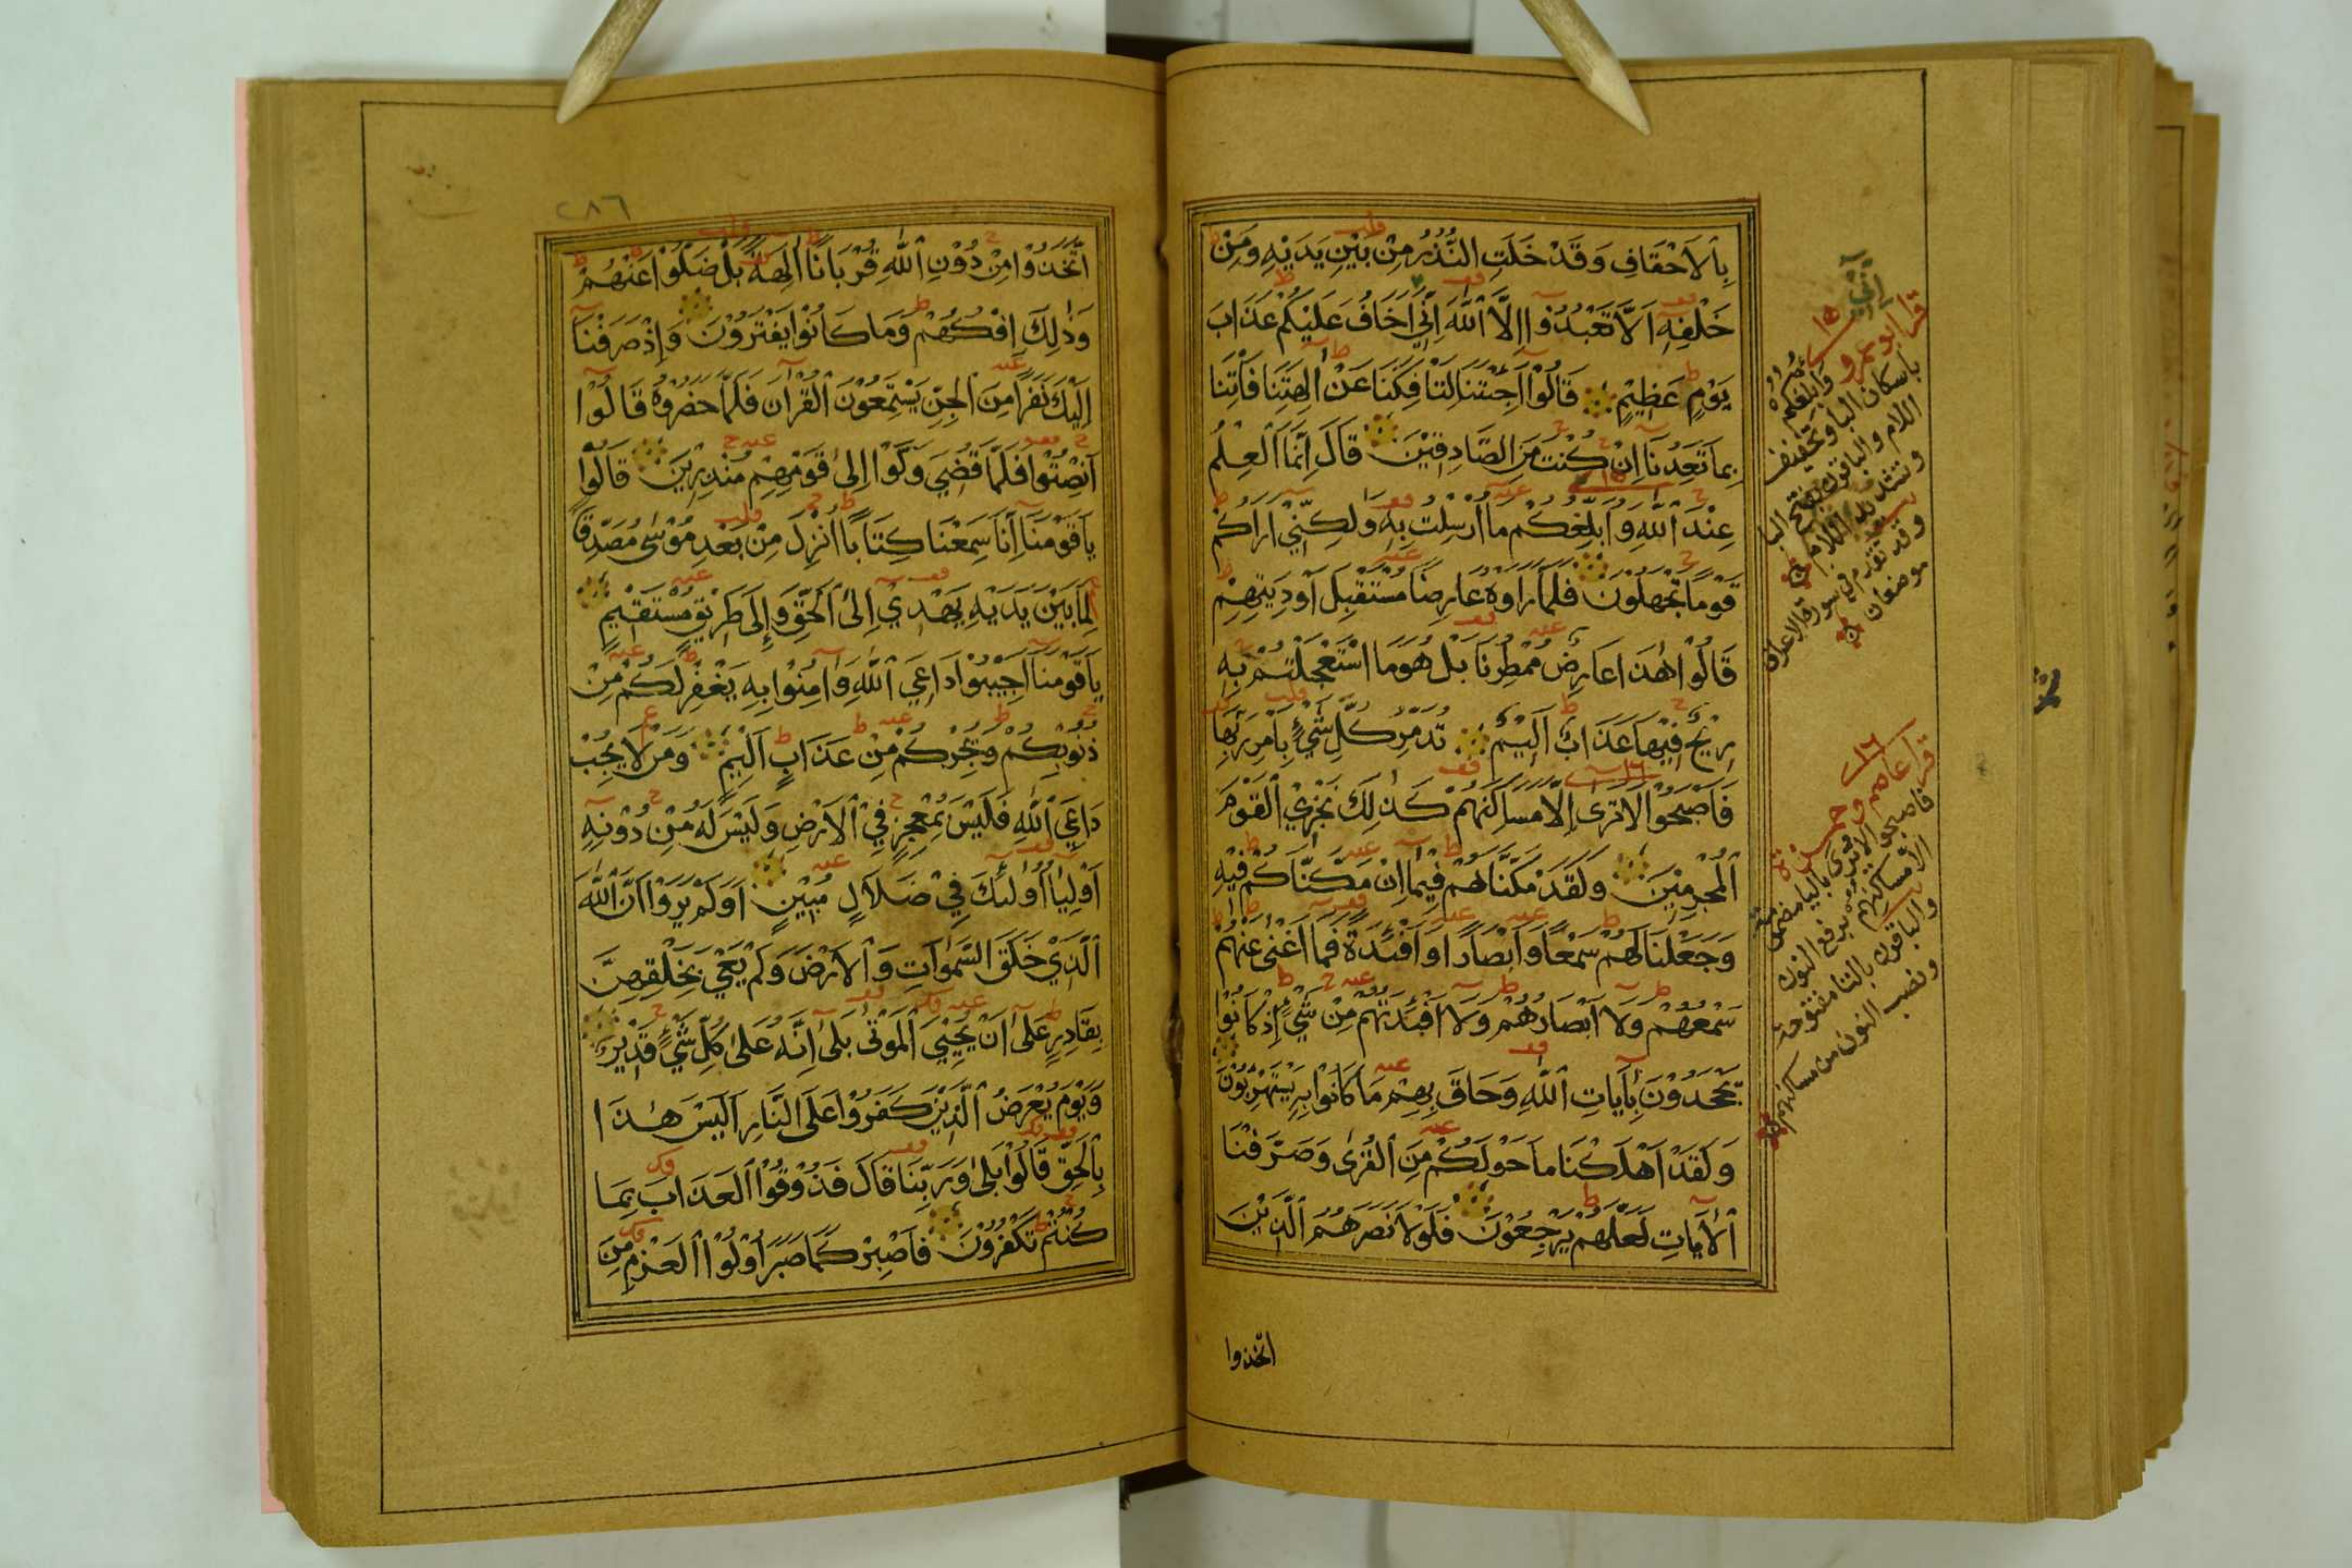 بِالْأَحْقَافِ وَقَدْ خَلَتِ النُّذُرُ مِنْ بَيْنِ يَدَيْهِ وَمِنْ
خَلْفِهِ اَلَّا تَعْبُدُوْا اِلَّا اللّٰهَ اِنِّي اَخَافُ عَلَيْكُمْ عَذَابَ
يَوْمٍ عَظِيْمٍ قَالُوْا اَجِئْتَنَا لِتَأْفِكَنَا عَنْ اٰلِهَتِنَا فَأْتِنَا
بِمَا تَعِدُنَا اِنْ كُنْتَ مِنَ الصَّادِقِيْنَ قَالَ اِنَّمَا الْعِلْمُ
عِنْدَ اللّٰهِ وَاُبَلِّغُكُمْ مَا اُرْسِلْتُ بِهِ وَلٰكِنِّيْ اَرَاكُمْ
قَوْمًا تَجْهَلُوْنَ فَلَمَّا رَاَوْهُ عَارِضًا مُسْتَقْبِلَ اَوْدِيَتِهِمْ
قَالُوْا هٰذَا عَارِضٌ مُمْطِرُنَا بَلْ هُوَ مَا اسْتَعْجَلْتُمْ بِهِ
رِيْحٌ فِيْهَا عَذَابٌ اَلِيْمٌ تُدَمِّرُ كُلَّ شَيْءٍ بِاَمْرِ رَبِّهَا
فَاَصْبَحُوْا لَا تَرٰى اِلَّا مَسَاكِنَهُمْ كَذٰلِكَ نَجْزِيْ الْقَوْمَ
الْمُجْرِمِيْنَ وَلَقَدْ مَكَّنَّاهُمْ فِيْمَا اِنْ مَكَّنَّاكُمْ فِيْهِ
وَجَعَلْنَا لَهُمْ سَمْعًا وَاَبْصَارًا وَاَفْئِدَةً فَمَا اَغْنٰى عَنْهُمْ
سَمْعُهُمْ وَلَا اَبْصَارُهُمْ وَلَا اَفْئِدَتُهُمْ مِنْ شَيْءٍ اِذْ كَانُوْا
يَجْحَدُوْنَ بِاٰيَاتِ اللّٰهِ وَحَاقَ بِهِمْ مَا كَانُوْا بِهِ يَسْتَهْزِئُوْنَ
وَلَقَدْ اَهْلَكْنَا مَا حَوْلَكُمْ مِنَ الْقُرٰى وَصَرَّفْنَا
الْاٰيَاتِ لَعَلَّهُمْ يَرْجِعُوْنَ فَلَوْلَا نَصَرَهُمُ الَّذِيْنَ
اتخذوا
اِنِّي
١٥
قرأ ابو عمرو وَاُبْلِغُكُمْ
باسكان البا وتخفيف
اللام والباقون بفتح البا
وتشديد اللام
وقد تقدم في سورة الاعراف
موضعان
١٦
قرأ عاصم وحمزة
فاصبحوا لا يرى باليا مضمومة
الا مساكنهم برفع النون
والباقون بالتا مفتوحة
ونصب النون من مساكنهم
٢٨٦
اتَّخَذُوْا مِنْ دُوْنِ اللّٰهِ قُرْبَانًا اٰلِهَةً بَلْ ضَلُّوْا عَنْهُمْ
وَذٰلِكَ اِفْكُهُمْ وَمَا كَانُوْا يَفْتَرُوْنَ وَاِذْ صَرَفْنَا
اِلَيْكَ نَفَرًا مِنَ الْجِنِّ يَسْتَمِعُوْنَ الْقُرْاٰنَ فَلَمَّا حَضَرُوْهُ قَالُوْا
اَنْصِتُوْا فَلَمَّا قُضِيَ وَلَّوْا اِلٰى قَوْمِهِمْ مُنْذِرِيْنَ قَالُوْا
يَاقَوْمَنَا اِنَّا سَمِعْنَا كِتَابًا اُنْزِلَ مِنْ بَعْدِ مُوْسٰى مُصَدِّقًا
لِمَا بَيْنَ يَدَيْهِ يَهْدِيْ اِلَى الْحَقِّ وَاِلٰى طَرِيْقٍ مُسْتَقِيْمٍ
يَاقَوْمَنَا اَجِيْبُوْا دَاعِيَ اللّٰهِ وَاٰمِنُوْا بِهِ يَغْفِرْ لَكُمْ مِنْ
ذُنُوْبِكُمْ وَيُجِرْكُمْ مِنْ عَذَابٍ اَلِيْمٍ وَمَنْ لَا يُجِبْ
دَاعِيَ اللّٰهِ فَلَيْسَ بِمُعْجِزٍ فِي الْاَرْضِ وَلَيْسَ لَهُ مِنْ دُوْنِهِ
اَوْلِيَاءُ اُولٰئِكَ فِيْ ضَلَالٍ مُبِيْنٍ اَوَلَمْ يَرَوْا اَنَّ اللّٰهَ
الَّذِيْ خَلَقَ السَّمٰوَاتِ وَالْاَرْضَ وَلَمْ يَعْيَ بِخَلْقِهِنَّ
بِقَادِرٍ عَلٰى اَنْ يُحْيِيَ الْمَوْتٰى بَلٰى اِنَّهُ عَلٰى كُلِّ شَيْءٍ قَدِيْرٌ
وَيَوْمَ يُعْرَضُ الَّذِيْنَ كَفَرُوْا عَلَى النَّارِ اَلَيْسَ هٰذَا
بِالْحَقِّ قَالُوْا بَلٰى وَرَبِّنَا قَالَ فَذُوْقُوْا الْعَذَابَ بِمَا
كُنْتُمْ تَكْفُرُوْنَ فَاصْبِرْ كَمَا صَبَرَ اُولُوْا الْعَزْمِ مِنَ